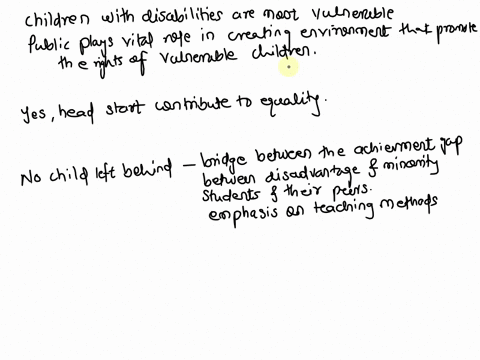 children with disabilities are most vulnerable
Public plays vital role in creating environment that promote
the rights of vulnerable children.
Yes, head start contribute to equality.
No child left behind – bridge between the achierment gap
between disadvantage & minority
students & their peers.
emphasis on teaching methods